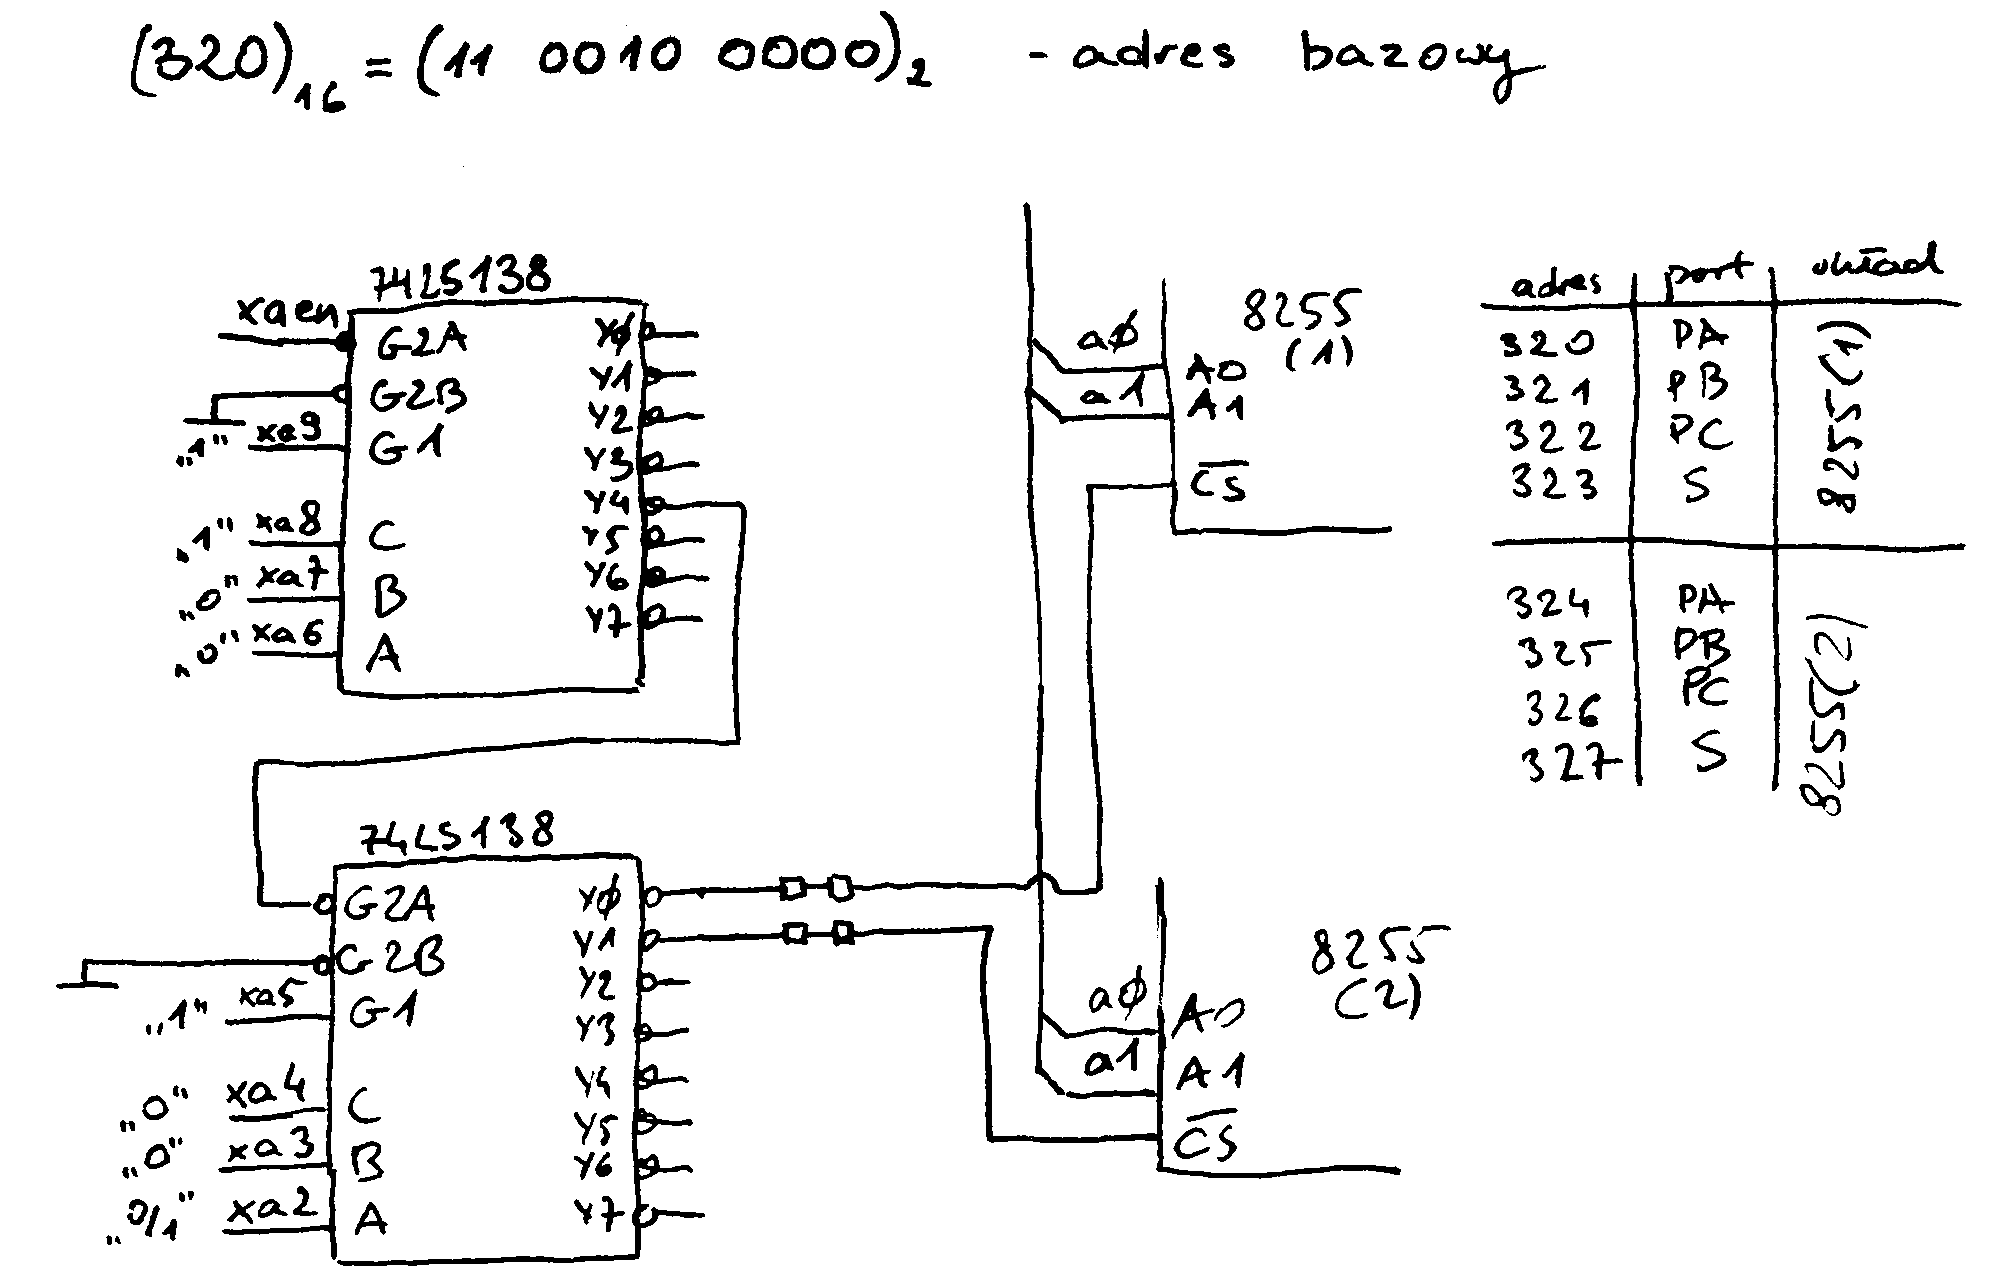 (320)16 = (11 0010 0000)2 - adres bazowy
74LS138
xaen G2A YØ
G2B Y1
„1” xa9 G1 Y2
Y3
Y4
„1” xa8 C Y5
„0” xa7 B Y6
„0” xa6 A Y7
74LS138
G2A YØ
G2B Y1
„1” xa5 G1 Y2
Y3
„0” xa4 C Y4
„0” xa3 B Y5
Y6
„0/1” xa2 A Y7
8255
(1)
aØ A0
a1 A1
CS
8255
(2)
aØ A0
a1 A1
CS
adres port układ
320 PA 8255(1)
321 PB
322 PC
323 S
324 PA 8255(2)
325 PB
326 PC
327 S